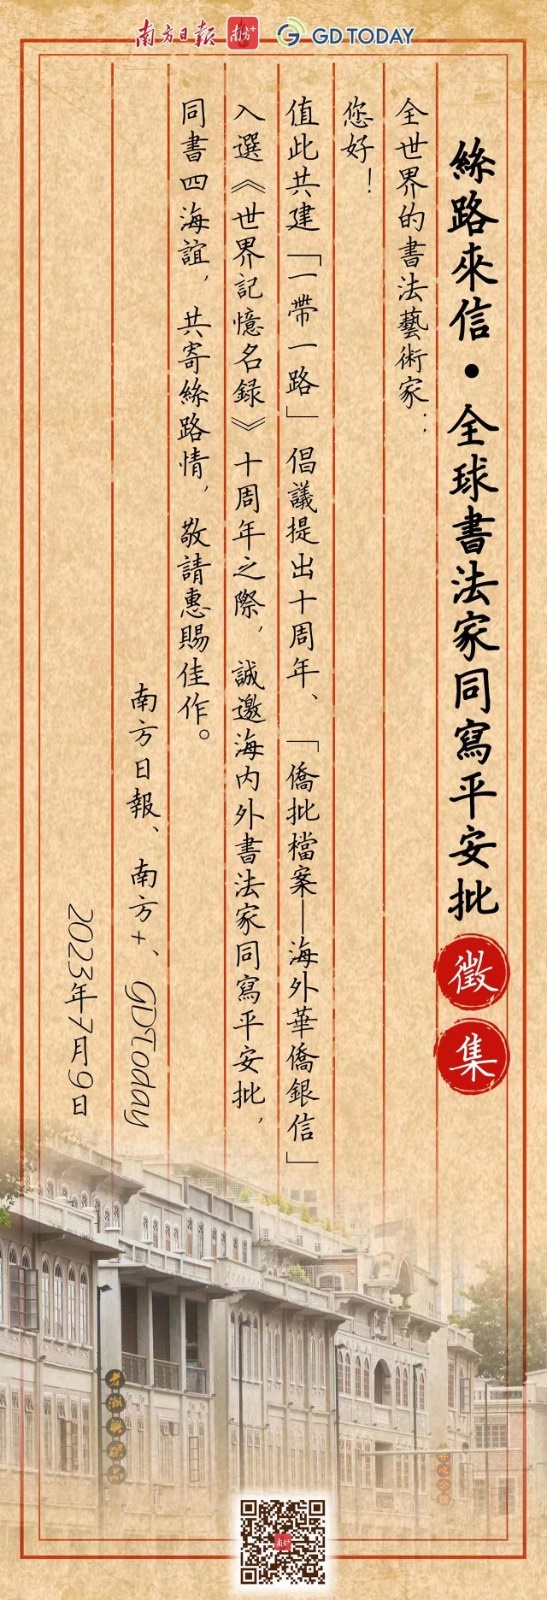 南方日報 南方+ GDTODAY
絲路來信·全球書法家同寫平安批
徵集
全世界的書法藝術家：
您好！
值此共建「一帶一路」倡議提出十周年、「僑批檔案—海外華僑銀信」
入選《世界記憶名録》十周年之際，誠邀海内外書法家同寫平安批，
同書四海誼，共寄絲路情，敬請惠賜佳作。
南方日報、南方+、GDToday
2023年7月9日
南方+